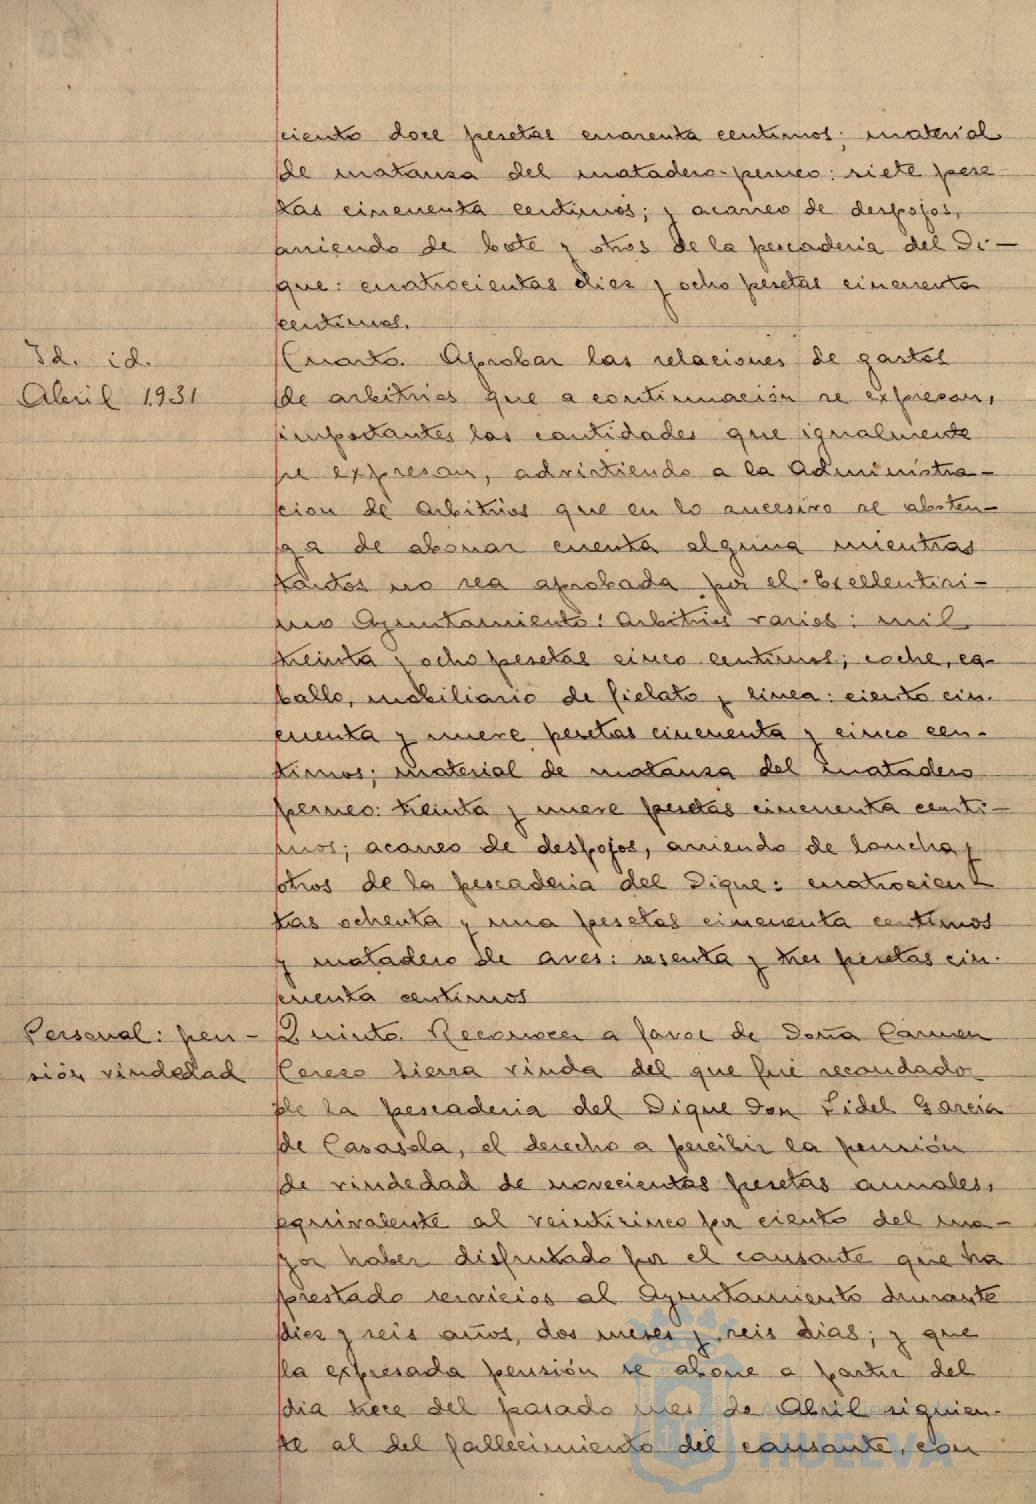 ciento doce pesetas cuarenta centimos; material
de matanza del matadero-perneo: siete pese
tas cincuenta centimos; y acarreo de despojos,
arriendo de bote y otros de la pescaderia del Di-
que: cuatrocientas diez y ocho pesetas cincuenta
centimos.
Id. id.
Abril 1.931
Cuarto. Aprobar las relaciones de gastos
de arbitrios que a continuación se expresan,
importantes las cantidades que igualmente
se expresan, advirtiendo a la Administra-
cion de Arbitrios que en lo sucesivo se absten-
ga de abonar cuenta alguna mientras
tantos no sea aprobada por el Excellentisi-
mo Ayuntamiento: Arbitrios varios: mil
treinta y ocho pesetas cinco centimos; coche, ca-
ballo, mobiliario de fielato y linea: ciento cin-
cuenta y nueve pesetas cincuenta y cinco cen-
timos; material de matanza del matadero
perneo: treinta y nueve pesetas cincuenta centi-
mos; acarreo de despojos, arriendo de lancha y
otros de la pescaderia del Dique: cuatrocien-
tas ochenta y una pesetas cincuenta centimos
y matadero de aves: sesenta y tres pesetas cin-
cuenta centimos
Personal: pen-
sión viudedad
Quinto. Reconocer a favor de Doña Carmen
Cerezo Sierra viuda del que fué recaudador
de la pescaderia del Dique Don Fidel García
de Casasola, el derecho a percibir la pensión
de viudedad de novecientas pesetas anuales,
equivalente al veinticinco por ciento del ma-
yor haber disfrutado por el causante que ha
prestado servicios al Ayuntamiento durante
diez y seis años, dos meses y seis dias; y que
la expresada pensión se abone a partir del
dia trece del pasado mes de Abril siguien-
te al del fallecimiento del causante, con
HUELVA